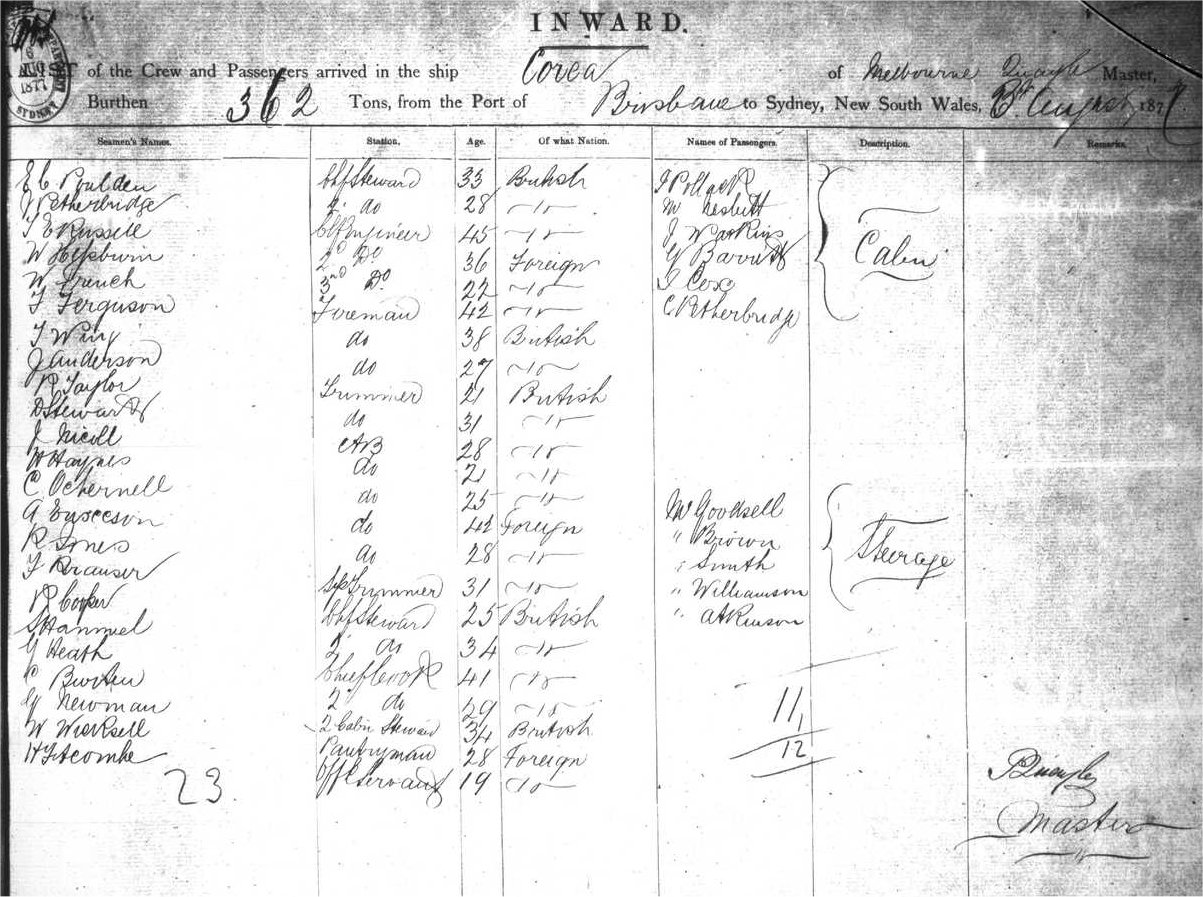 INWARD.
LIST of the Crew and Passengers arrived in the ship Corea of Melbourne Quayle Master,
Burthen 362 Tons, from the Port of Brisbane to Sydney, New South Wales, August 187
AUG
1877
SYDNEY
Seamen's Names. Station. Age. Of what Nation. Names of Passengers. Description. Remarks.
E C Poulden Chf Steward 33 British J Pollack
J Petherbridge 2 do 28 do M Nesbitt Cabin
T E Russell Chf Engineer 45 do J Watkins
W Hepburn 2d Do 36 Foreign G Barratt
W French 3nd Do 22 do J Cox
T Ferguson Fireman 42 do C Petherbridge
T Wing do 38 British
J Anderson do 27 do
R Taylor Trimmer 21 British
D Stewart do 31 do
J Nicoll AB 28 do
H Haynes do 21 do
C Ochernell do 25 do Mr Goodsell
A do 42 Foreign " Brown
R Jones do 28 do " Smith Steerage
T Krauser Trimmer 31 do " Williamson
R Cooper Chf Steward 25 British " Atkinson
S Hammel 2 do 34 do
G Heath Chief Cook 41 do
C 2 do 29 do 11
G Newman 2 Cabin Steward 34 British 1
W Wicksell Pantryman 28 Foreign 12
H Titcombe Servant 19 do
23
Quayle
Master